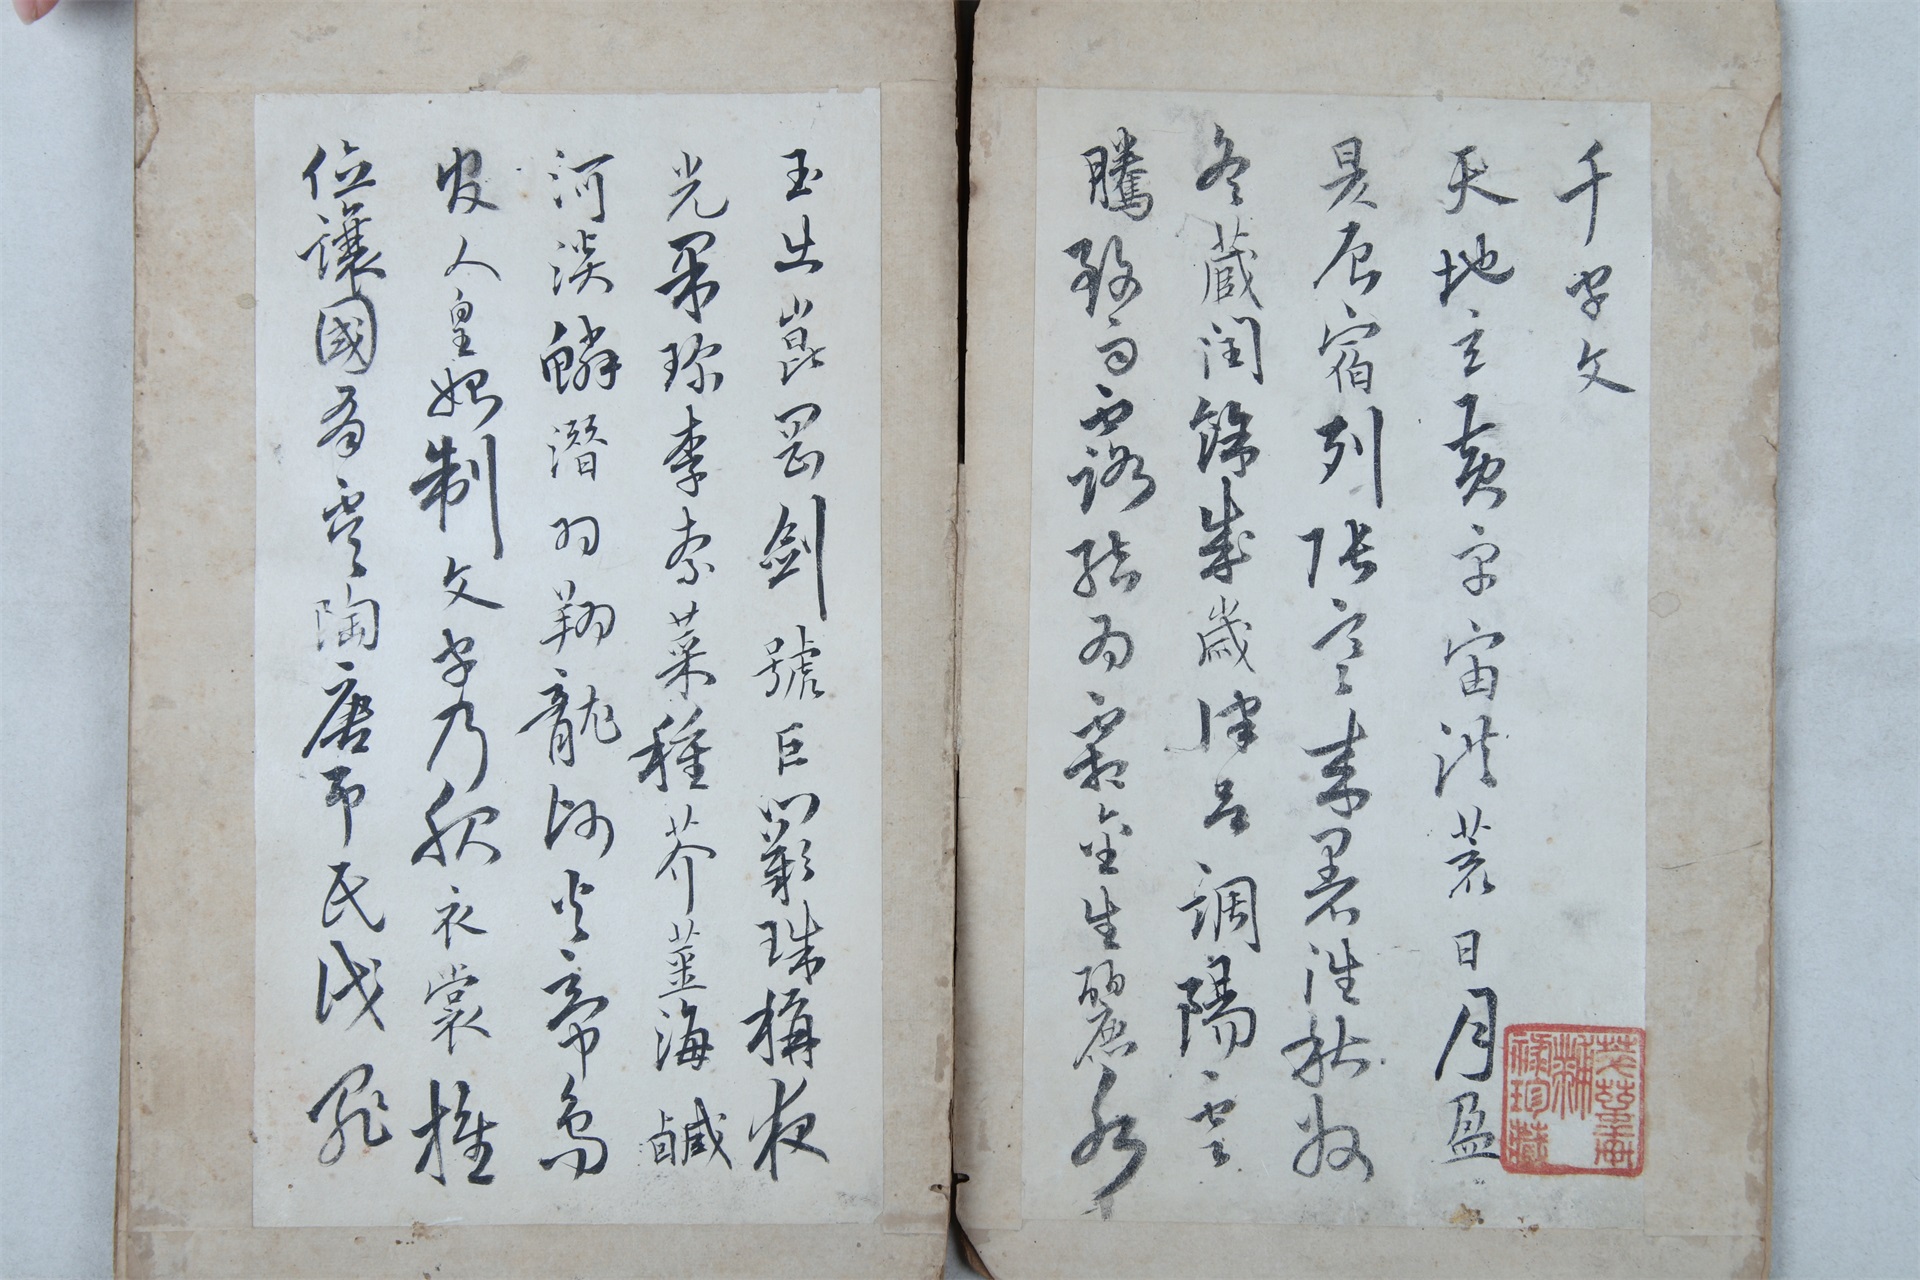 千字文
天地玄黃宇宙洪荒日月盈
昃辰宿列張寒来暑往秋收
冬蔵閏餘成歲律呂調陽雲
騰致雨露結為霜金生麗水
玉出崑岡劍號巨闕珠稱夜
光果珍李柰菜種芥薑海鹹
河淡鱗潛羽翔龍師火帝鳥
官人皇始制文字乃服衣裳推
位讓國有虞陶唐吊民伐罪
珍藏